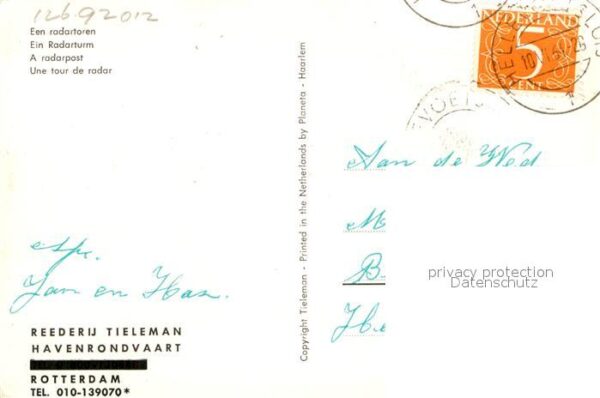 126.92012
Een radartoren
Ein Radarturm
A radarpost
Une tour de radar
NEDERLAND
5
CENT
Copyright Tieleman - Printed in the Netherlands by Planeta - Haarlem
Aan de Wed
M
B
privacy protection
Datenschutz
He
Jan en
REEDERIJ TIELEMAN
HAVENRONDVAART
ROTTERDAM
TEL. 010-139070*